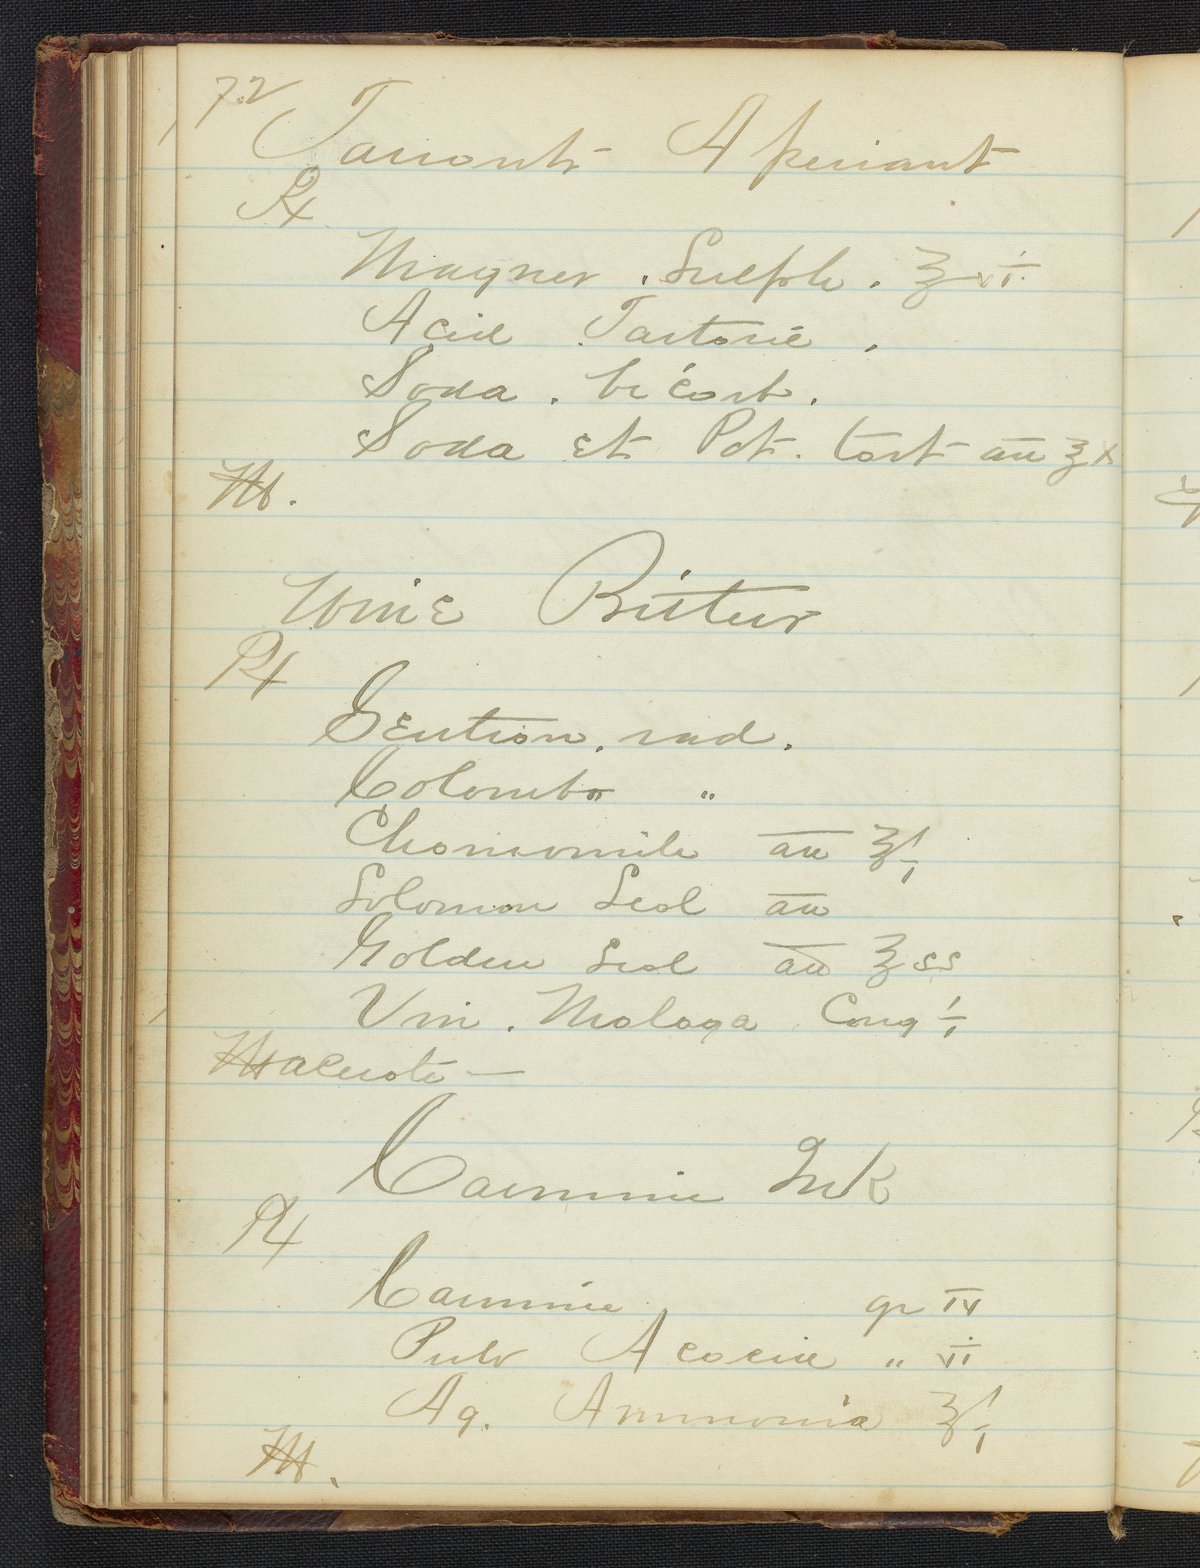 72
Tarrants Aperiant
℞
Magnes. Sulph. ʒ vi
Acid Tartaric.
Soda. bi carb.
Soda et Pot. tart aa ʒ x
M.
Wine Bitters
℞
Gentian. rad.
Colombo "
Chamomile aa ℥ i
Solomon Seal aa
Golden Seal aa ℥ ss
Vin. Malaga Cong i
Macerate —
Carmine Ink
℞
Carmine gr IV
Pulv Acaciae " vi
Aq. Ammonia ℥ i
M.